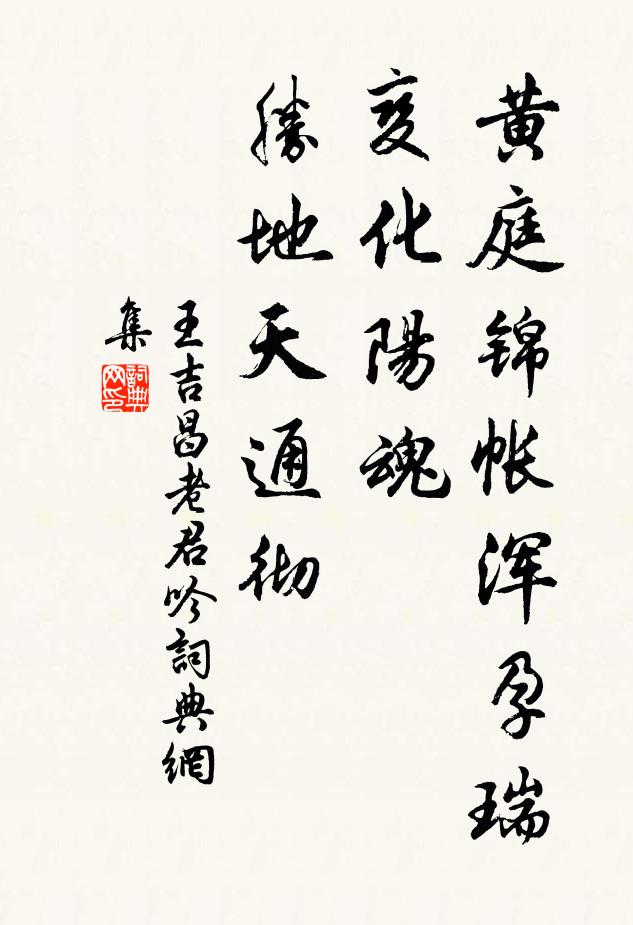 黄庭锦帐浑孕瑞
变化陽魂
勝地天通彻
王吉昌老君吟詞典網
集
詞典网印